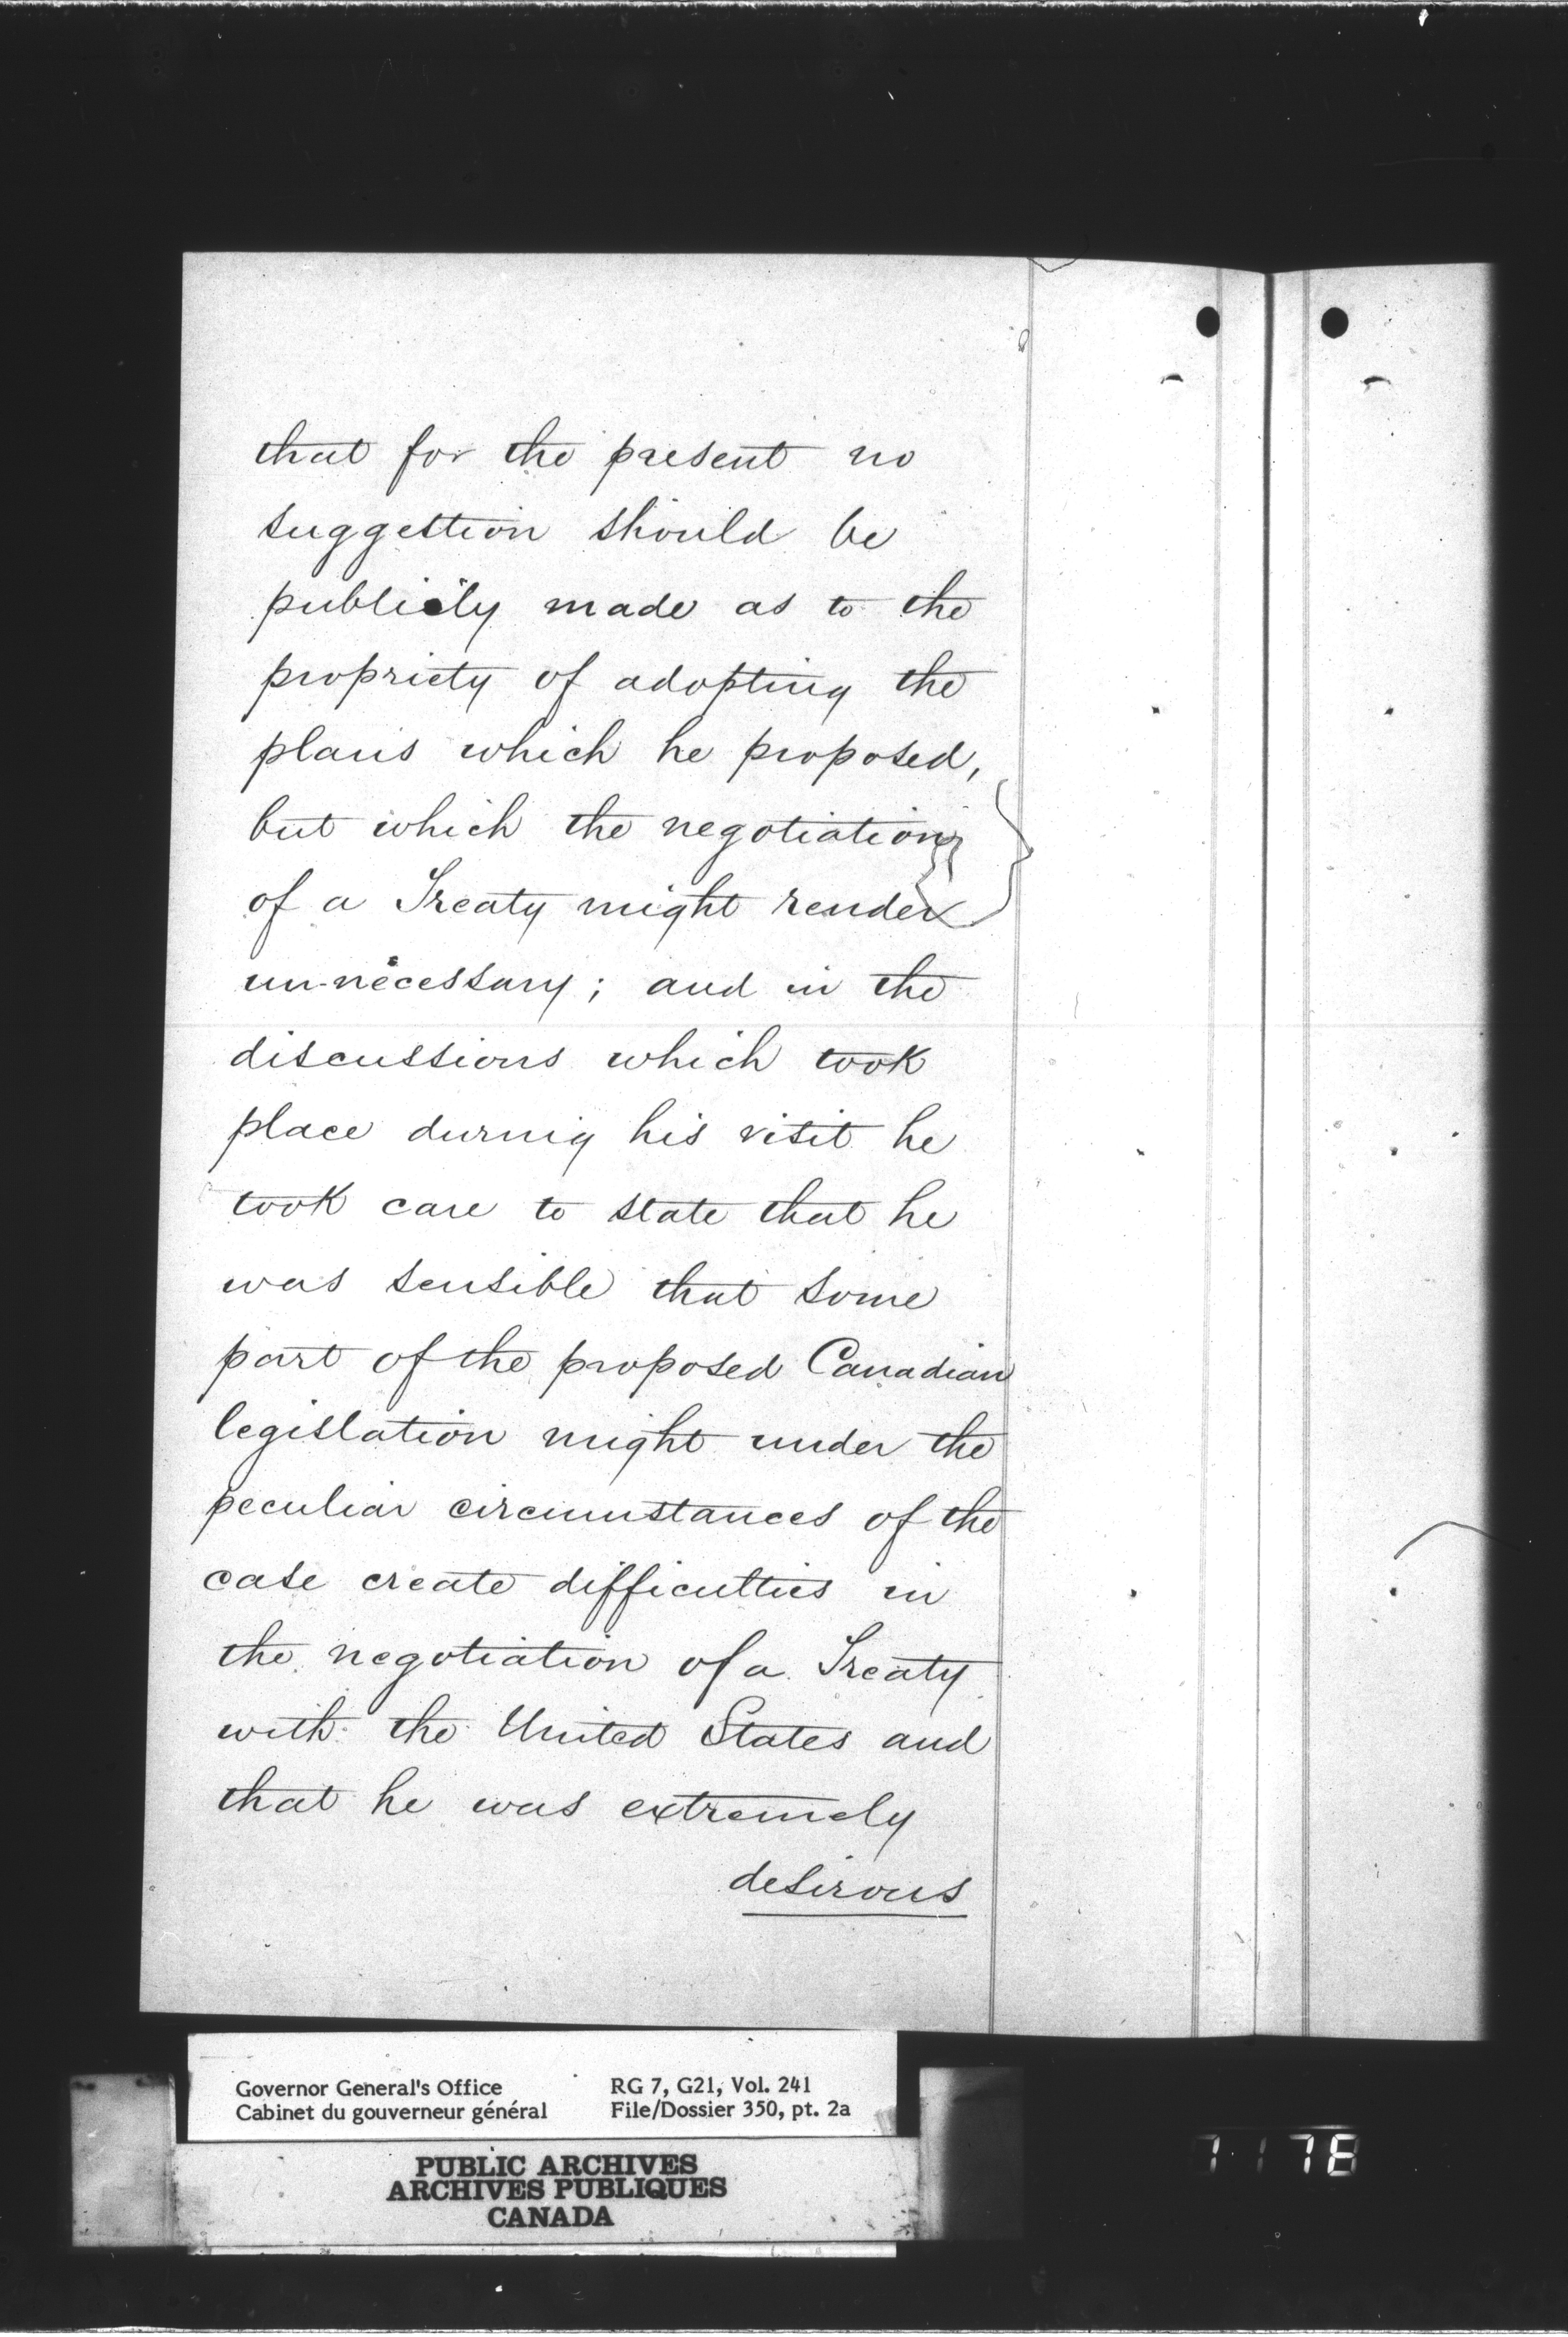 that for the present no
suggestion should be
publicly made as to the
propriety of adopting the
plans which he proposed,
but which the negotiation
of a Treaty might render
un-necessary; and in the
discussions which took
place during his visit he
took care to state that he
was sensible that some
part of the proposed Canadian
legislation might under the
peculiar circumstances of the
case create difficulties in
the negotiation of a Treaty
with the United States and
that he was extremely
desirous
Governor General's Office RG 7, G21, Vol. 241
Cabinet du gouverneur général File/Dossier 350, pt. 2a
PUBLIC ARCHIVES
ARCHIVES PUBLIQUES
CANADA
7178